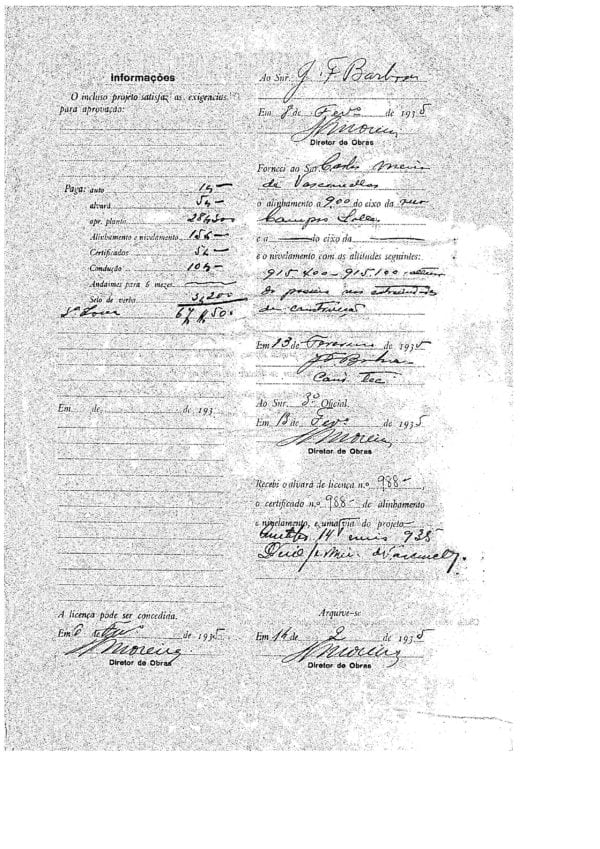 Informações
O incluso projeto satisfaz as exigencias
para aprovação:
Paga: auto 1$—
alvará 5$—
apr. planta
Alinhamento e nivelamento 15$—
Certificados 5$—
Condução 10$—
Andaimes para 6 mezes
Selo de verba 3$200
Em de de 193
A licença pode ser concedida.
Em de de 1935
H Moreira
Diretor de Obras
Ao Snr. J. F Barbosa
Em 8 de Fevº de 1935
H Moreira
Diretor de Obras
Forneci ao Sr. Carlos
de Vasconcellos
o alinhamento a 9,00 do eixo da rua
Campos Salles
e a do eixo da
e o nivelamento com as altitudes seguintes:
915.400 — 915.100
do passeio nas extremidades
da construção
Em 13 de Fevereiro de 1935
Cond. Tec
Ao Snr. 3º Oficial.
Em 13 de Fevº de 1935
H Moreira
Diretor de Obras
Recebi o alvará de licença n.o 988—
o certificado n.o 988— de alinhamento
e nivelamento, e uma via do projeto—
14 935
Arquive-se
Em 14 de 2 de 1935
H Moreira
Diretor de Obras